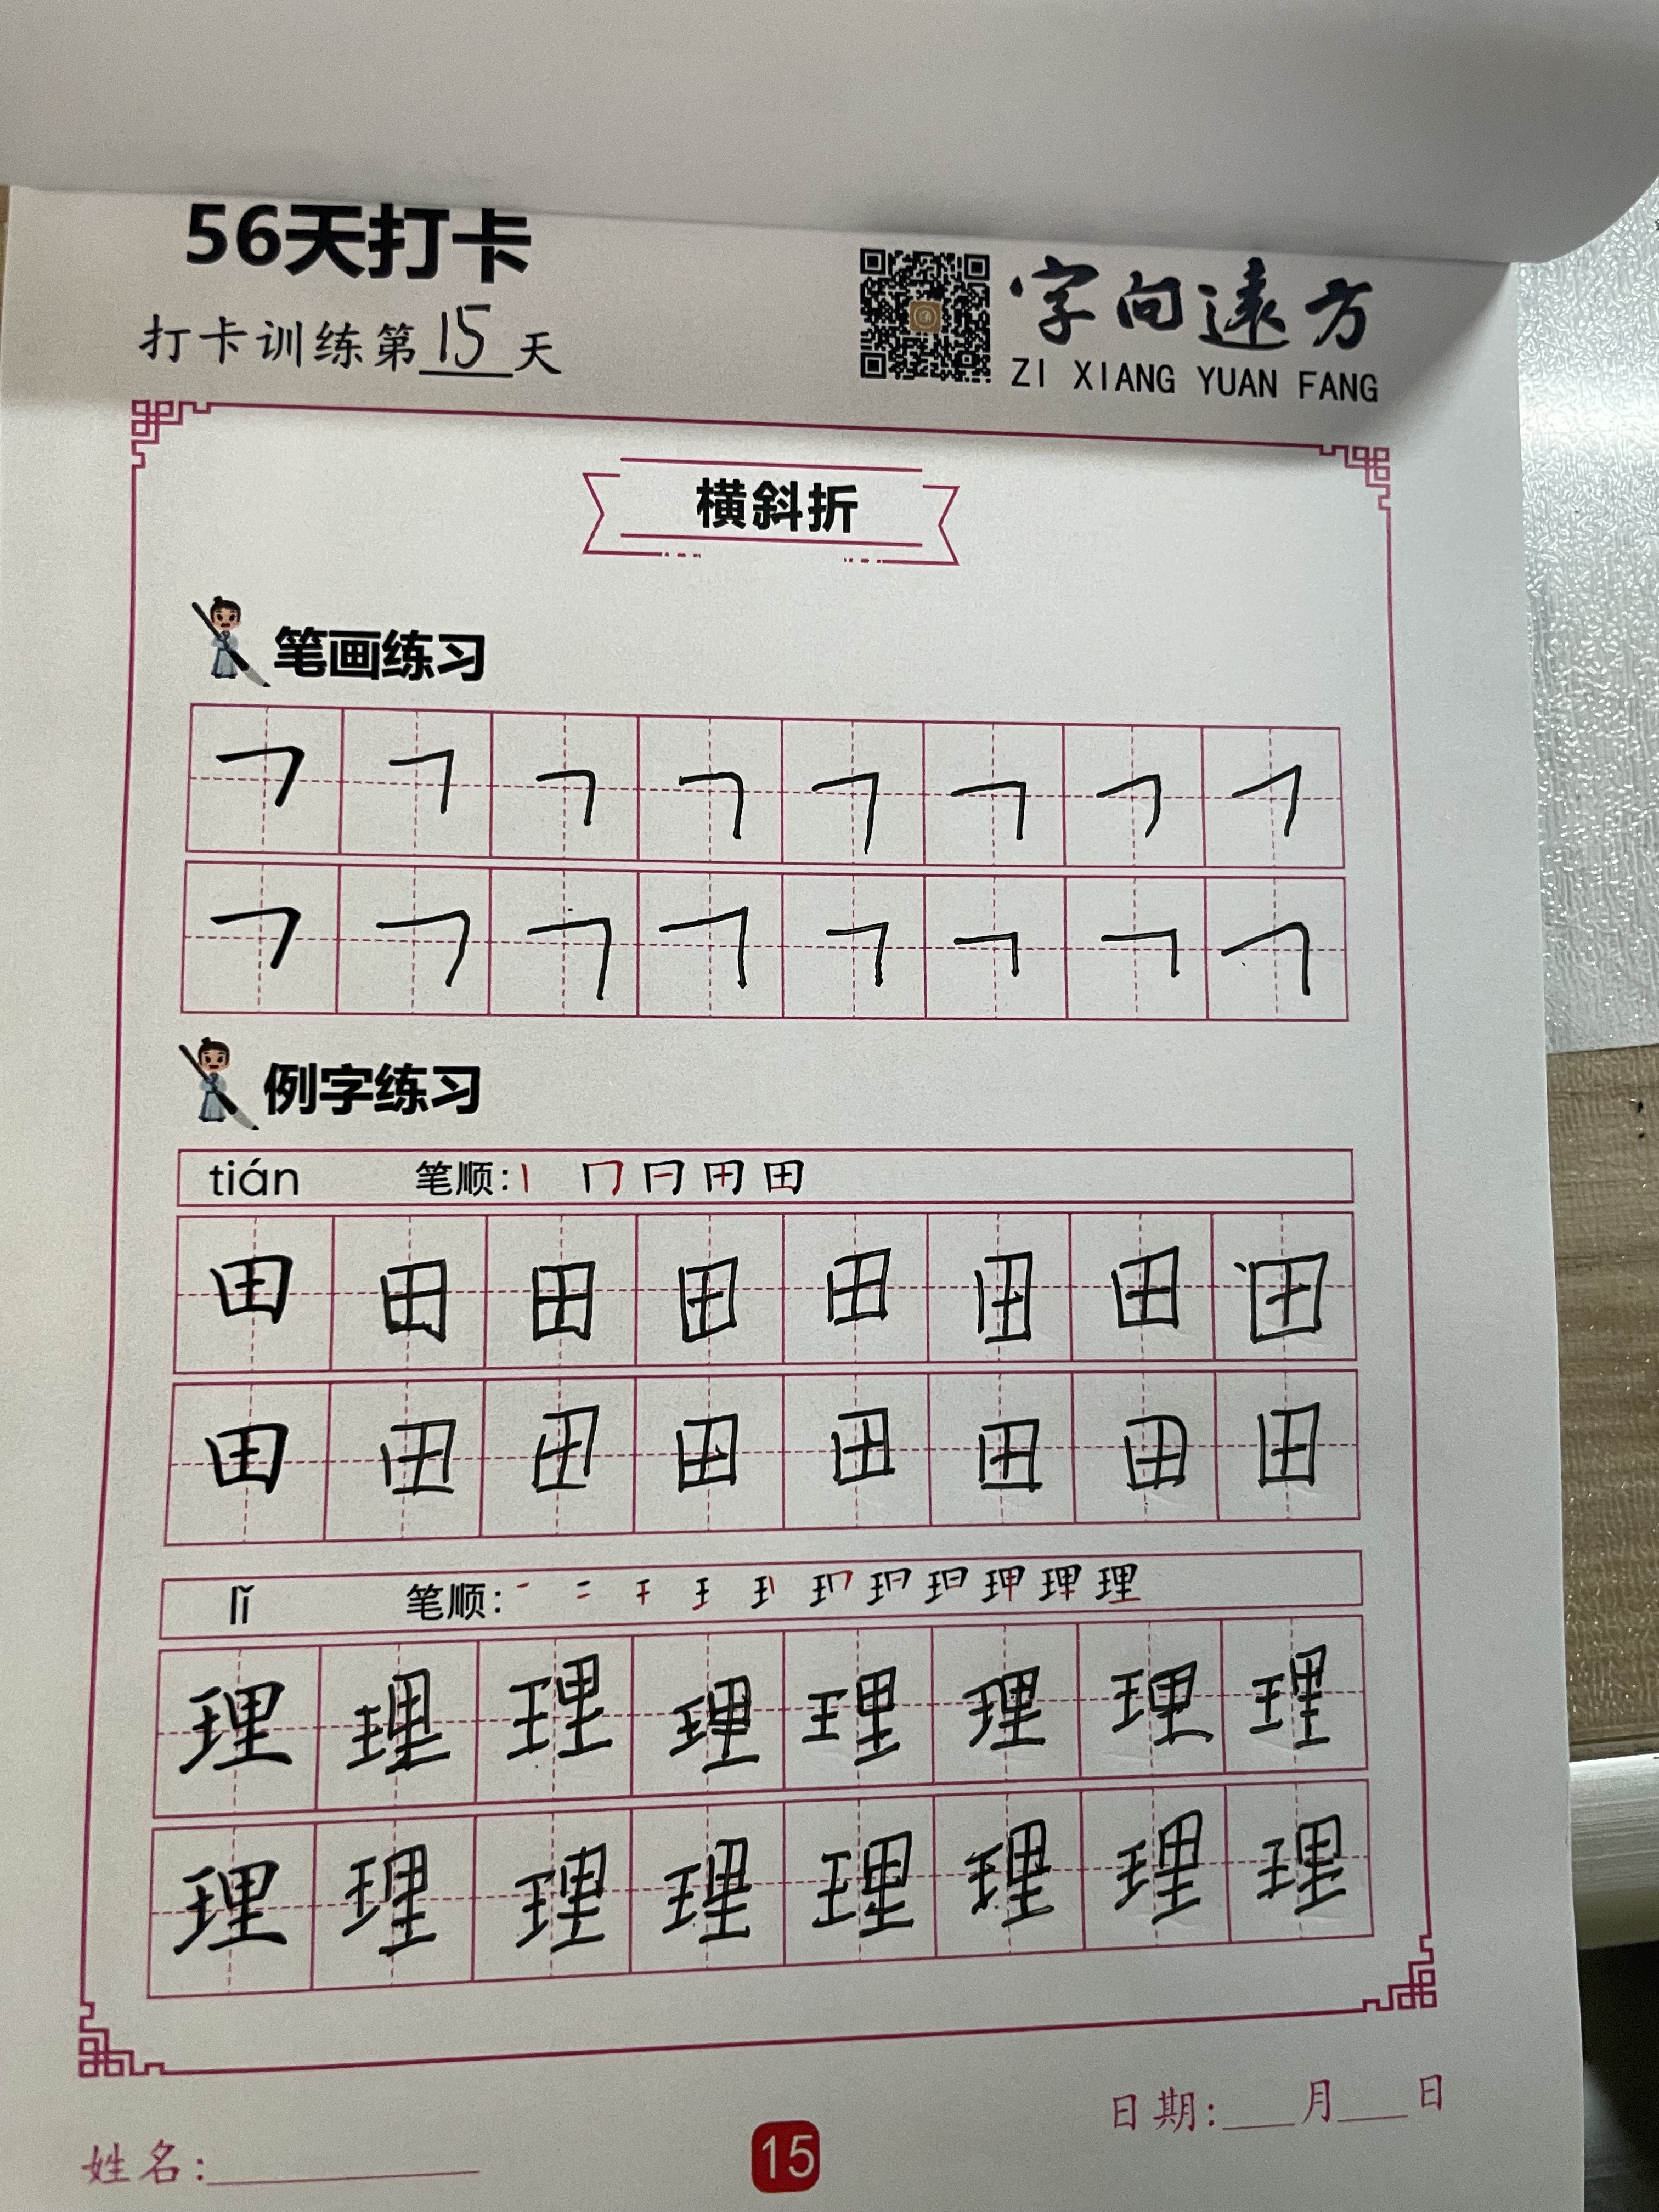 56天打卡
打卡训练第15天
字向遠方
ZI XIANG YUAN FANG
横斜折
笔画练习
㇕ ㇕ ㇕ ㇕ ㇕ ㇕ ㇕ ㇕
㇕ ㇕ ㇕ ㇕ ㇕ ㇕ ㇕ ㇕
例字练习
tián 笔顺: 丨 冂 日 田 田
田 田 田 田 田 田 田 田
田 田 田 田 田 田 田 田
lǐ 笔顺: 理
理 理 理 理 理 理 理 理
理 理 理 理 理 理 理 理
日期:___月___日
姓名:
15